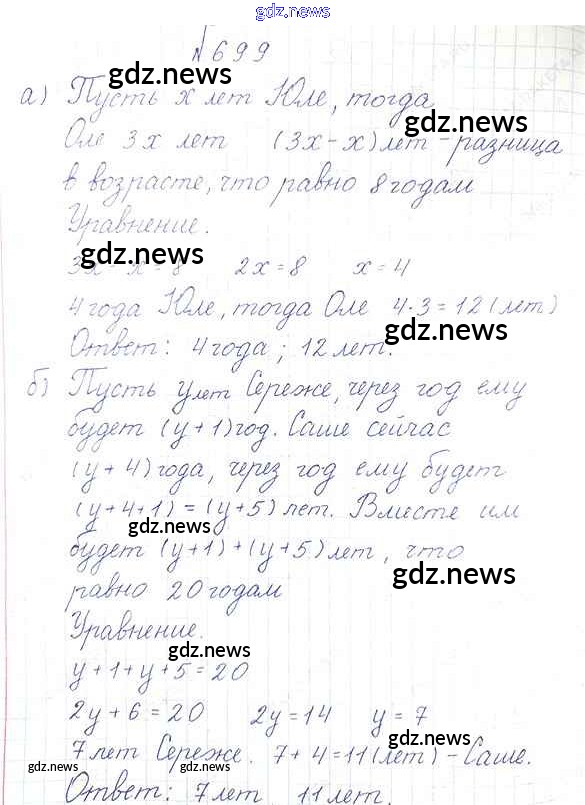 gdz.news
№ 699
gdz.news
а) Пусть x лет Юле, тогда
gdz.news
Оле 3x лет (3x - x) лет - разница
в возрасте, что равно 8 годам
Уравнение.
gdz.news
3x - x = 8 2x = 8 x = 4
4 года Юле, тогда Оле 4 · 3 = 12 (лет)
gdz.news
Ответ: 4 года; 12 лет.
б) Пусть y лет Сереже, через год ему
будет (y + 1) год. Саше сейчас
(y + 4) года, через год ему будет
(y + 4 + 1) = (y + 5) лет. Вместе им
gdz.news
будет (y + 1) + (y + 5) лет, что
gdz.news
равно 20 годам
Уравнение.
gdz.news
y + 1 + y + 5 = 20
2y + 6 = 20 2y = 14 y = 7
gdz.news
7 лет Сереже. 7 + 4 = 11 (лет) - Саше.
gdz.news gdz.news
Ответ: 7 лет 11 лет.